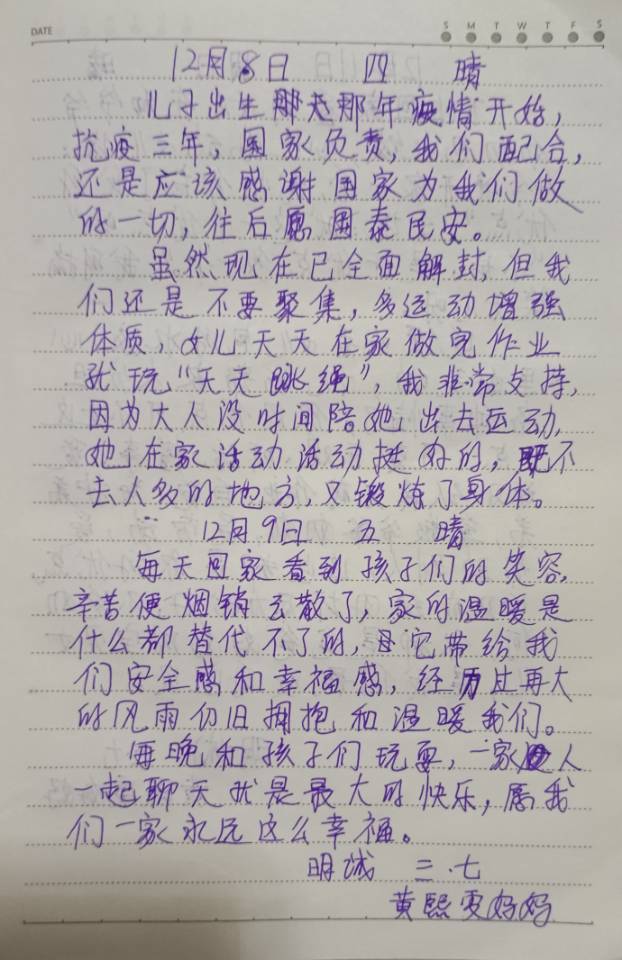 DATE
S M T W T F S
12月8日 四 晴
儿子出生那年疫情开始,
抗疫三年,国家负责,我们配合,
还是应该感谢国家为我们做
的一切,往后愿国泰民安。
虽然现在已全面解封,但我
们还是不要聚集,多运动增强
体质,女儿天天在家做完作业
就玩“天天跳绳”,我非常支持,
因为大人没时间陪她出去运动,
她在家活动活动挺好的,既不
去人多的地方,又锻炼了身体。
12月9日 五 晴
每天回家看到孩子们的笑容,
辛苦便烟销云散了,家的温暖是
什么都替代不了的,它带给我
们安全感和幸福感,经历过再大
的风雨仍旧拥抱和温暖我们。
每晚和孩子们玩耍,一家人
一起聊天就是最大的快乐,愿我
们一家永远这么幸福。
明诚 三.七
黄熙雯妈妈